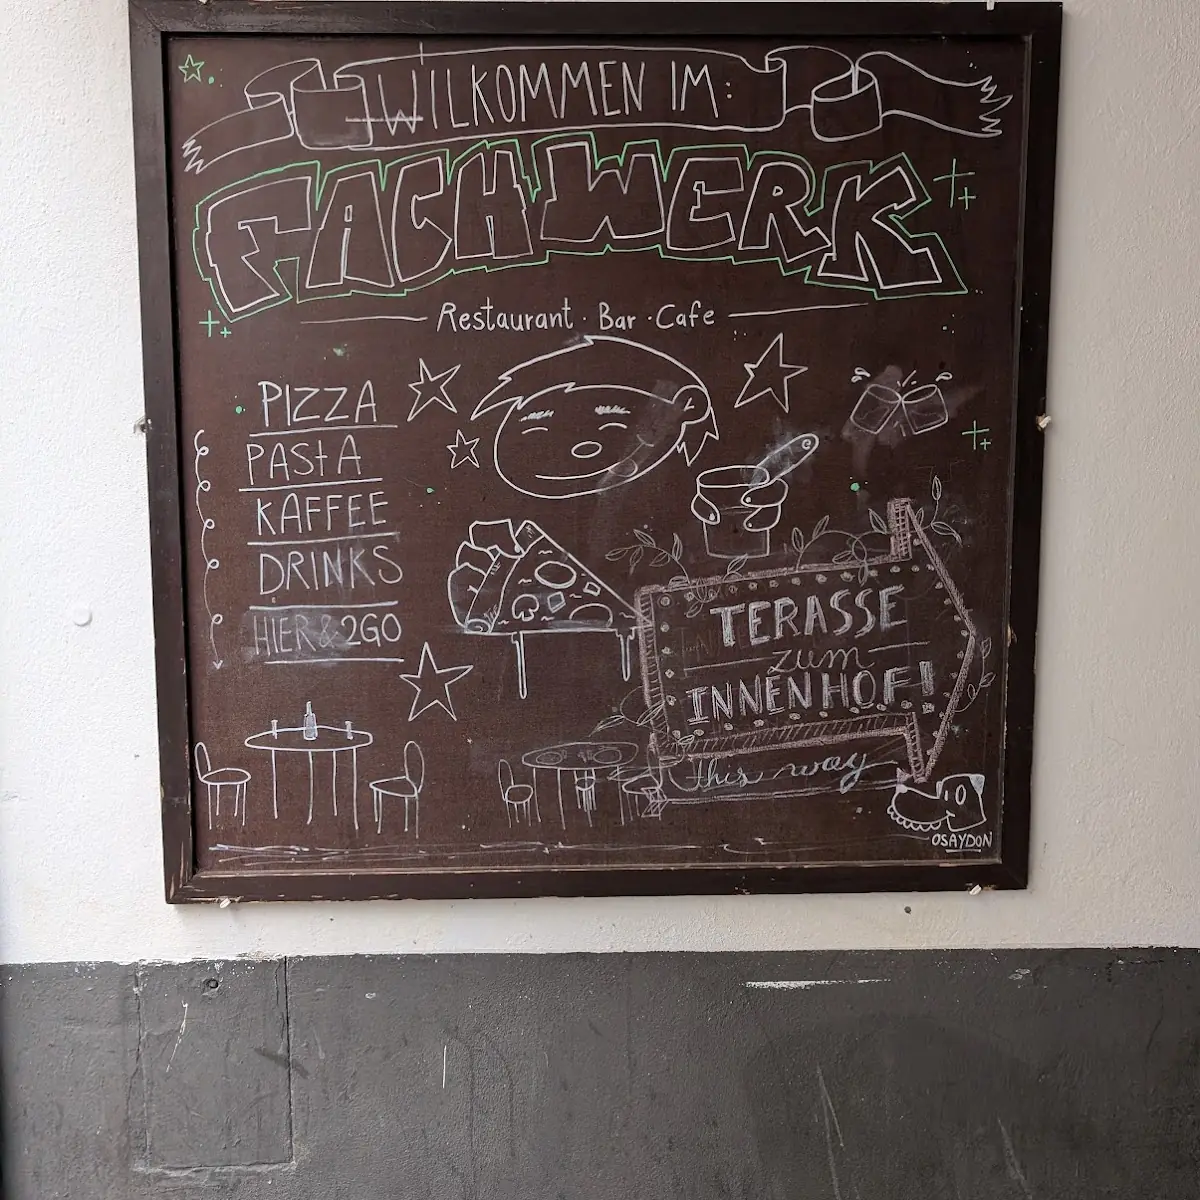 WILKOMMEN IM:
FACHWERK
Restaurant · Bar · Cafe
PIZZA
PAStA
KAFFEE
DRINKS
HIER & 2GO
TERASSE
zum
INNENHOF!
this way
OSAYDON